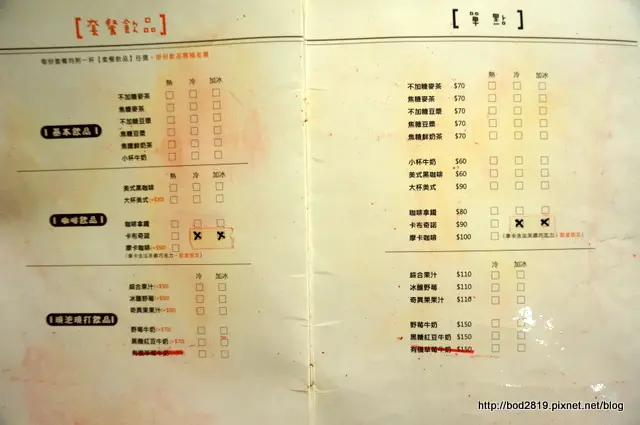 [套餐飲品]
每份套餐均附一杯【套餐飲品】任選，
熱 冷 加冰
基本飲品
不加糖麥茶
焦糖麥茶
不加糖豆漿
焦糖豆漿
焦糖鮮奶茶
小杯牛奶
熱 冷 加冰
咖啡飲品
美式黑咖啡
大杯美式(+$30)
咖啡拿鐵
卡布奇諾
摩卡咖啡(+$50)
冷 加冰
現泡現打飲品
綜合果汁(+$50)
冰釀野莓(+$50)
奇異果果汁(+$50)
野莓牛奶(+$70)
黑糖紅豆牛奶(+$70)
有機草莓牛奶
[單點]
熱 冷 加冰
不加糖麥茶 $70
焦糖麥茶 $70
不加糖豆漿 $70
焦糖豆漿 $70
焦糖鮮奶茶 $70
小杯牛奶 $60
美式黑咖啡 $60
大杯美式 $90
咖啡拿鐵 $80
卡布奇諾 $90
摩卡咖啡 $100
冷 加冰
綜合果汁 $110
冰釀野莓 $110
奇異果果汁 $110
野莓牛奶 $150
黑糖紅豆牛奶 $150
有機草莓牛奶 $150
http://bod2819.pixnet.net/blog